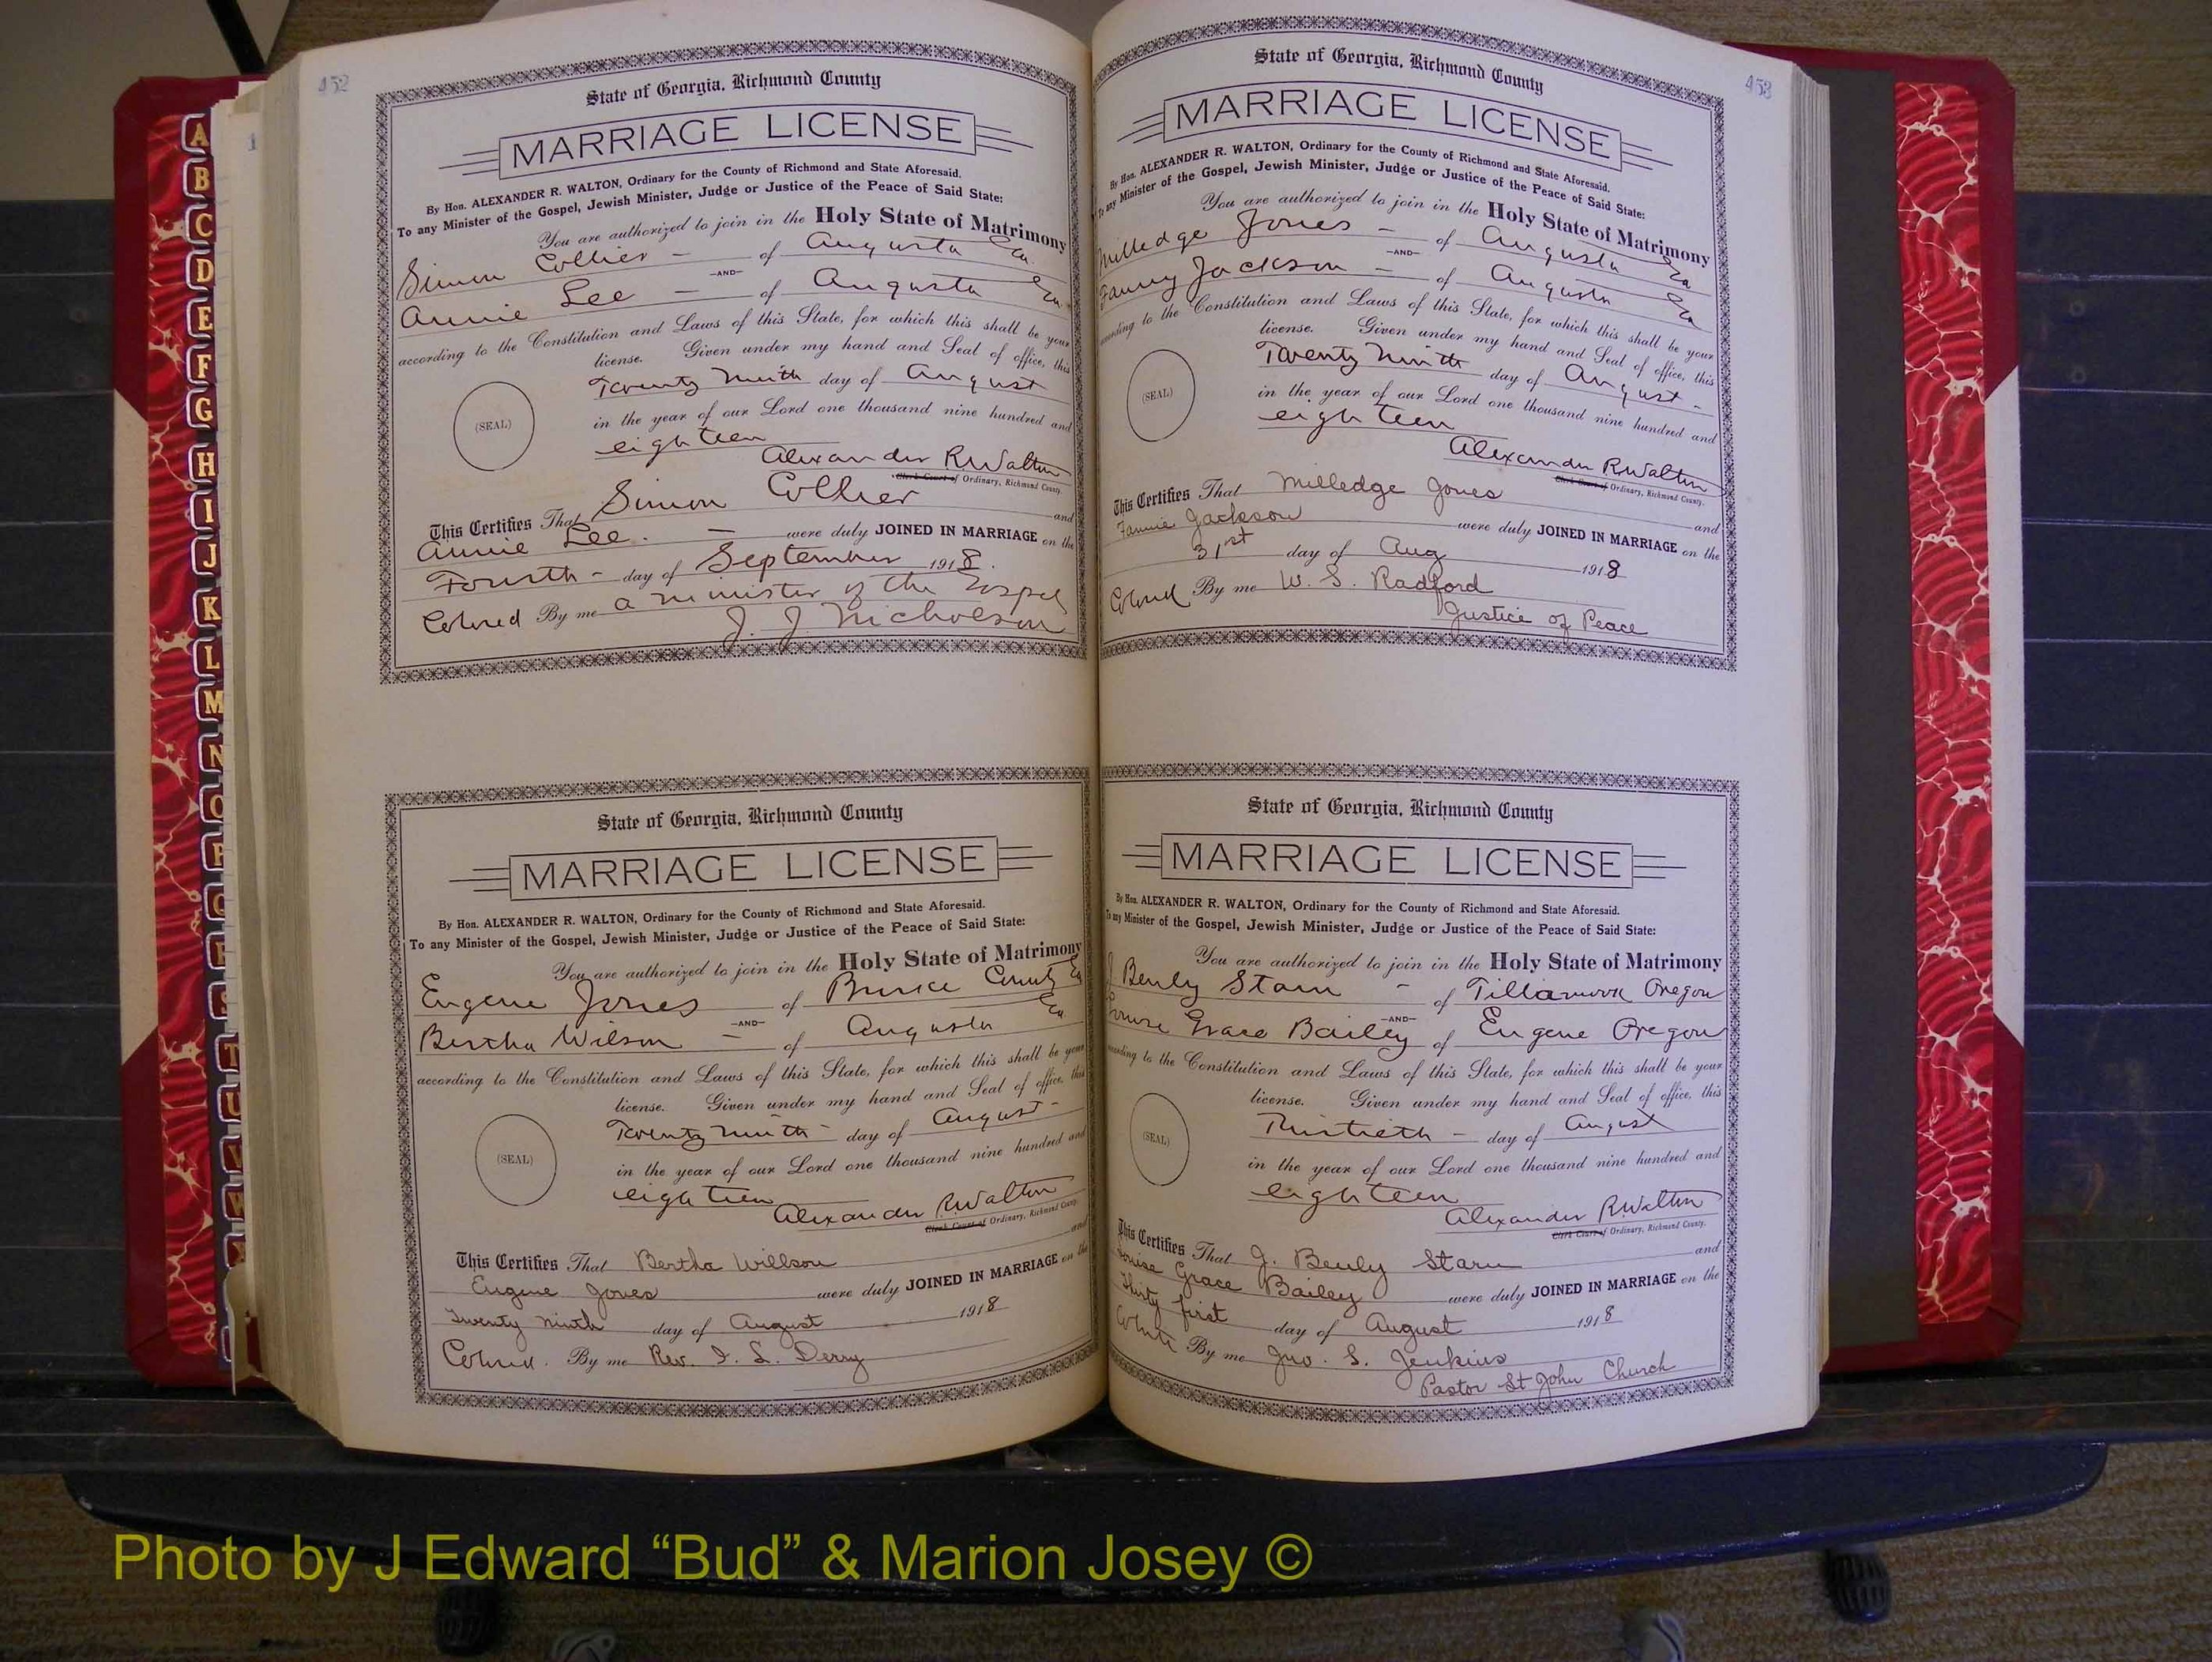 452
State of Georgia, Richmond County
MARRIAGE LICENSE
By Hon. ALEXANDER R. WALTON, Ordinary for the County of Richmond and State Aforesaid.
To any Minister of the Gospel, Jewish Minister, Judge or Justice of the Peace of Said State:
You are authorized to join in the Holy State of Matrimony
Simon Collier - of Augusta Ga.
-AND-
Annie Lee - of Augusta Ga.
according to the Constitution and Laws of this State, for which this shall be your
license. Given under my hand and Seal of office, this
Twenty Ninth day of August
(SEAL)
in the year of our Lord one thousand nine hundred and
eighteen
Alexander R Walton
Clerk Court of Ordinary, Richmond County.
This Certifies That Simon Collier and
Annie Lee. - were duly JOINED IN MARRIAGE on the
Fourth - day of September 1918.
Colored By me a minister of the Gospel
J. J. Nicholson
State of Georgia, Richmond County
MARRIAGE LICENSE
By Hon. ALEXANDER R. WALTON, Ordinary for the County of Richmond and State Aforesaid.
To any Minister of the Gospel, Jewish Minister, Judge or Justice of the Peace of Said State:
You are authorized to join in the Holy State of Matrimony
Eugene Jones of Burke County Ga
-AND-
Bertha Wilson - of Augusta Ga.
according to the Constitution and Laws of this State, for which this shall be your
license. Given under my hand and Seal of office, this
Twenty ninth - day of August -
(SEAL)
in the year of our Lord one thousand nine hundred and
eighteen
Alexander R Walton
Clerk Court of Ordinary, Richmond County.
This Certifies That Bertha Willson and
Eugene Jones were duly JOINED IN MARRIAGE on the
Twenty ninth day of August 1918
Colored. By me Rev. I. S. Derry
453
State of Georgia, Richmond County
MARRIAGE LICENSE
By Hon. ALEXANDER R. WALTON, Ordinary for the County of Richmond and State Aforesaid.
To any Minister of the Gospel, Jewish Minister, Judge or Justice of the Peace of Said State:
You are authorized to join in the Holy State of Matrimony
Milledge Jones - of Augusta Ga
-AND-
Fanny Jackson - of Augusta Ga
according to the Constitution and Laws of this State, for which this shall be your
license. Given under my hand and Seal of office, this
Twenty Ninth day of August -
(SEAL)
in the year of our Lord one thousand nine hundred and
eighteen
Alexander R Walton
Clerk Court of Ordinary, Richmond County.
This Certifies That Milledge Jones and
Fannie Jackson were duly JOINED IN MARRIAGE on the
31st day of Aug 1918
Colored By me W. S. Radford
Justice of Peace
State of Georgia, Richmond County
MARRIAGE LICENSE
By Hon. ALEXANDER R. WALTON, Ordinary for the County of Richmond and State Aforesaid.
To any Minister of the Gospel, Jewish Minister, Judge or Justice of the Peace of Said State:
You are authorized to join in the Holy State of Matrimony
J. Benly Starn - of Tillamook Oregon
-AND-
Louise Grace Bailey of Eugene Oregon
according to the Constitution and Laws of this State, for which this shall be your
license. Given under my hand and Seal of office, this
Thirtieth - day of August
(SEAL)
in the year of our Lord one thousand nine hundred and
eighteen
Alexander R Walton
Clerk Court of Ordinary, Richmond County.
This Certifies That J. Benly Starn and
Louise Grace Bailey were duly JOINED IN MARRIAGE on the
Thirty first day of August 1918
White By me Jno. S. Jenkins
Pastor St John Church
A
B
C
D
E
F
G
H
I
J
K
L
M
N
O
P
Q
R
S
T
U
V
W
X
Photo by J Edward “Bud” & Marion Josey ©